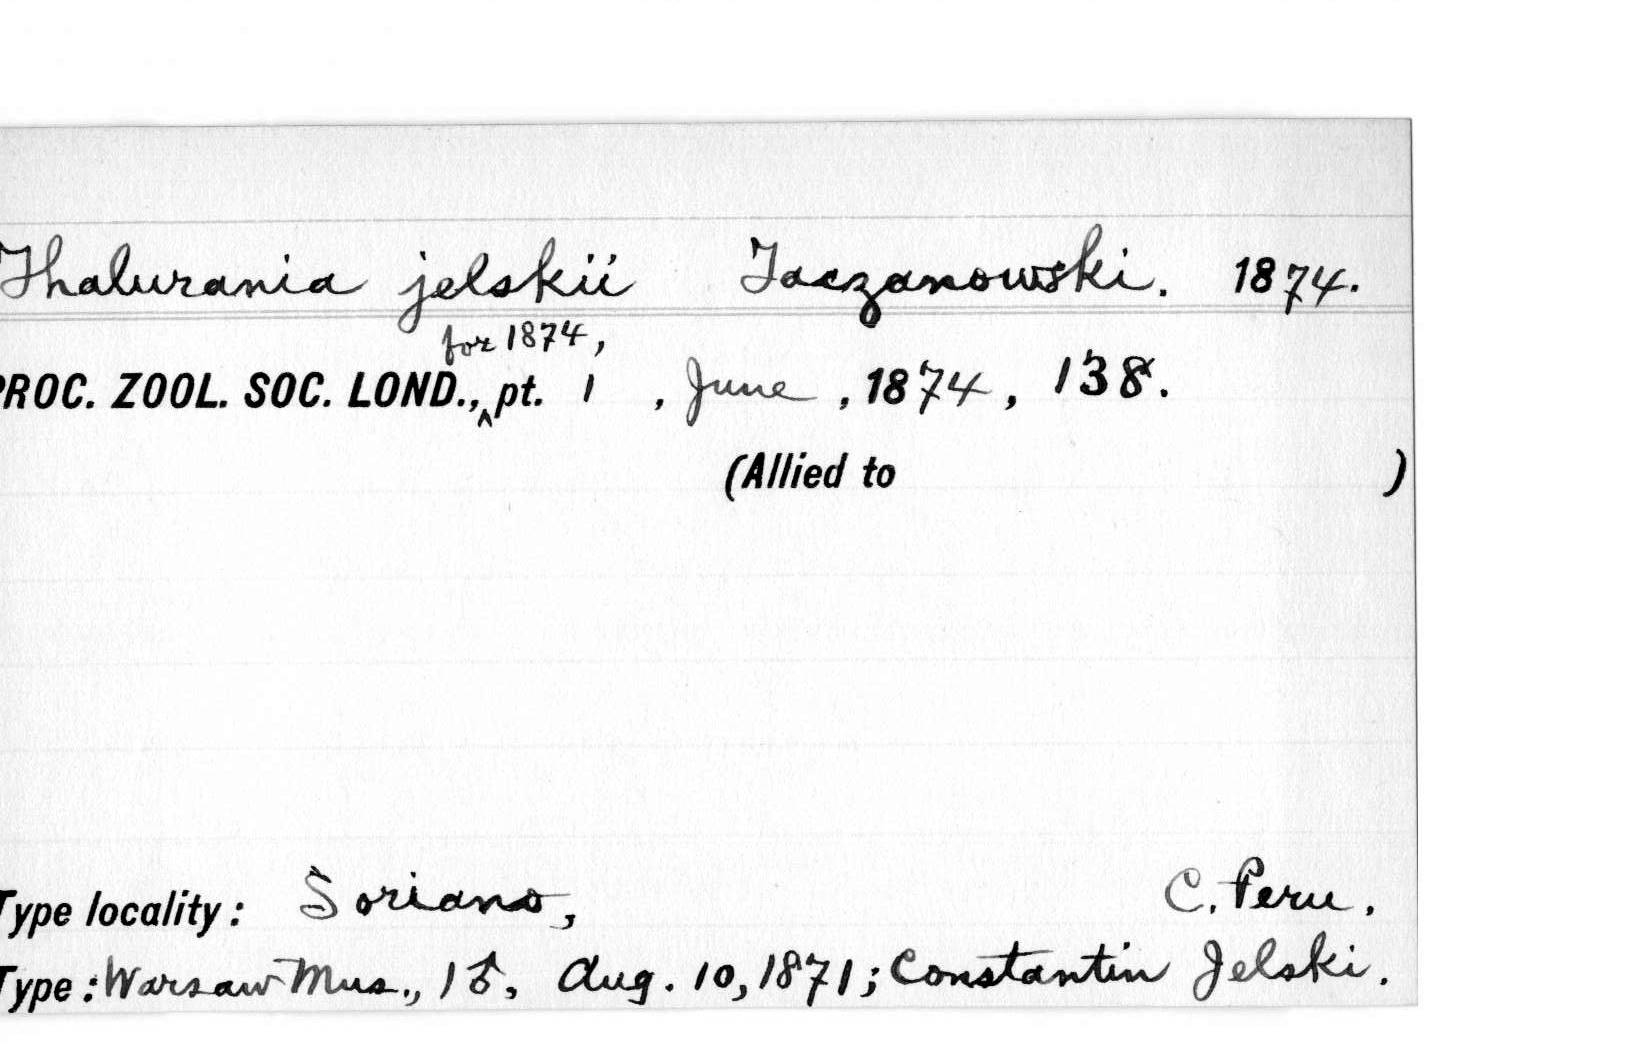 Thalurania jelskii Taczanowski. 1874.
for 1874,
PROC. ZOOL. SOC. LOND., ^ pt. 1 , June , 1874 , 138.
(Allied to )
Type locality: Soriano, C. Peru.
Type: Warsaw Mus., 1♂, Aug. 10, 1871; Constantin Jelski.